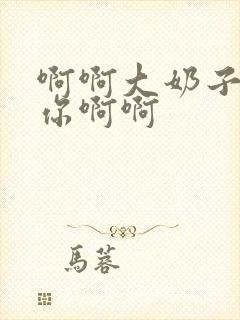 啊啊大奶子
你啊啊
馬蓉